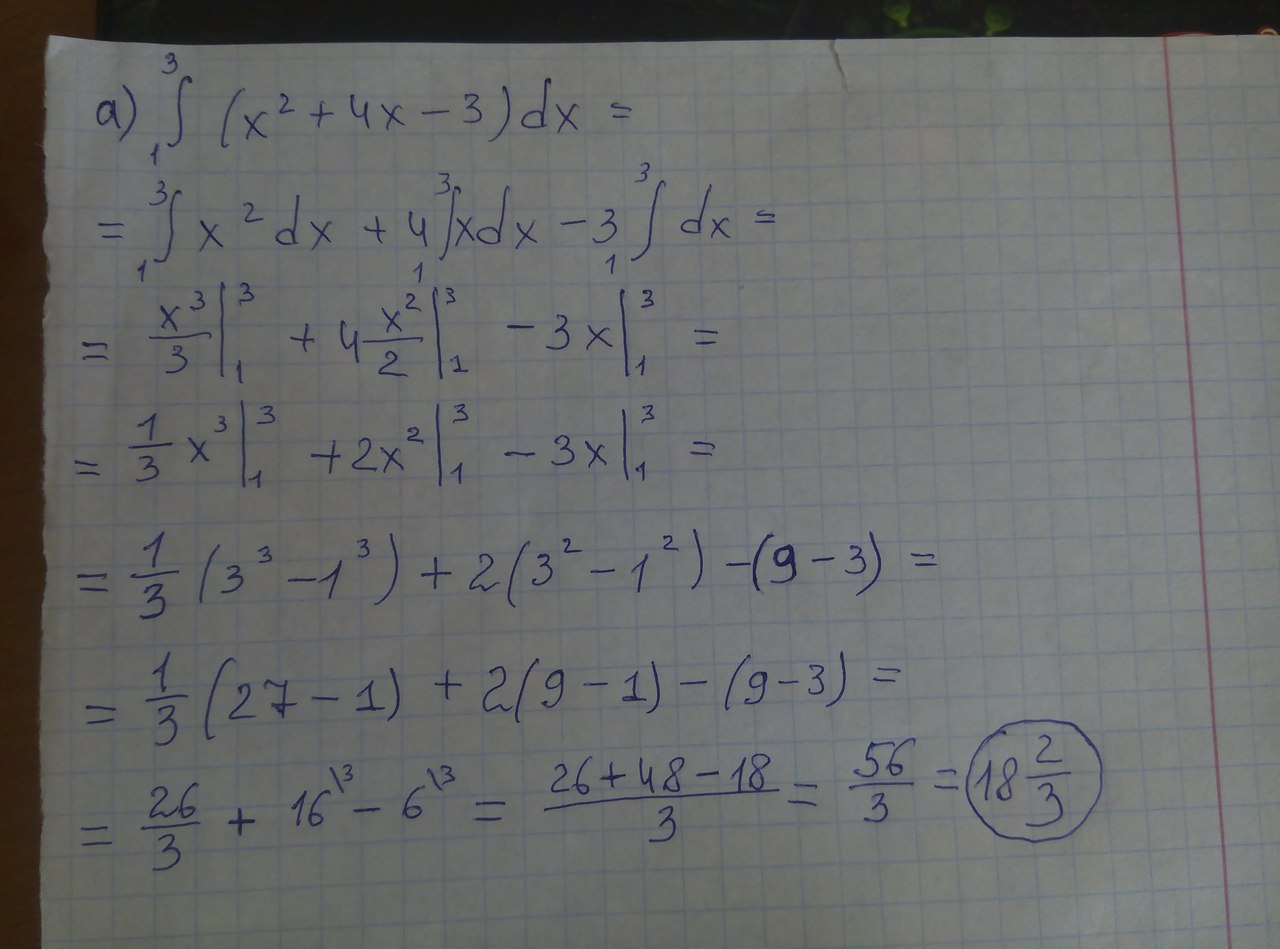 а) ∫₁³ (x² + 4x − 3) dx =
= ∫₁³ x² dx + 4 ∫₁³ x dx − 3 ∫₁³ dx =
= x³/3 |₁³ + 4 x²/2 |₁³ − 3x |₁³ =
= 1/3 x³ |₁³ + 2x² |₁³ − 3x |₁³ =
= 1/3 (3³ − 1³) + 2(3² − 1²) − (9 − 3) =
= 1/3 (27 − 1) + 2(9 − 1) − (9 − 3) =
= 26/3 + 16\³ − 6\³ = (26 + 48 − 18)/3 = 56/3 = 18 2/3